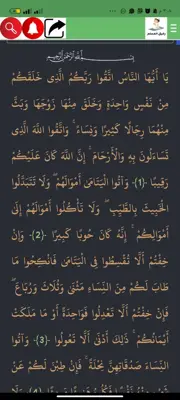 بسم الله الرحمن الرحيم
يَا أَيُّهَا النَّاسُ اتَّقُوا رَبَّكُمُ الَّذِي خَلَقَكُمْ
مِنْ نَفْسٍ وَاحِدَةٍ وَخَلَقَ مِنْهَا زَوْجَهَا وَبَثَّ
مِنْهُمَا رِجَالًا كَثِيرًا وَنِسَاءً ۚ وَاتَّقُوا اللَّهَ الَّذِي
تَسَاءَلُونَ بِهِ وَالْأَرْحَامَ ۚ إِنَّ اللَّهَ كَانَ عَلَيْكُمْ
رَقِيبًا ﴿1﴾ وَآتُوا الْيَتَامَىٰ أَمْوَالَهُمْ ۖ وَلَا تَتَبَدَّلُوا
الْخَبِيثَ بِالطَّيِّبِ ۖ وَلَا تَأْكُلُوا أَمْوَالَهُمْ إِلَىٰ
أَمْوَالِكُمْ ۚ إِنَّهُ كَانَ حُوبًا كَبِيرًا ﴿2﴾ وَإِنْ
خِفْتُمْ أَلَّا تُقْسِطُوا فِي الْيَتَامَىٰ فَانْكِحُوا مَا
طَابَ لَكُمْ مِنَ النِّسَاءِ مَثْنَىٰ وَثُلَاثَ وَرُبَاعَ ۖ
فَإِنْ خِفْتُمْ أَلَّا تَعْدِلُوا فَوَاحِدَةً أَوْ مَا مَلَكَتْ
أَيْمَانُكُمْ ۚ ذَٰلِكَ أَدْنَىٰ أَلَّا تَعُولُوا ﴿3﴾ وَآتُوا
النِّسَاءَ صَدُقَاتِهِنَّ نِحْلَةً ۚ فَإِنْ طِبْنَ لَكُمْ عَنْ